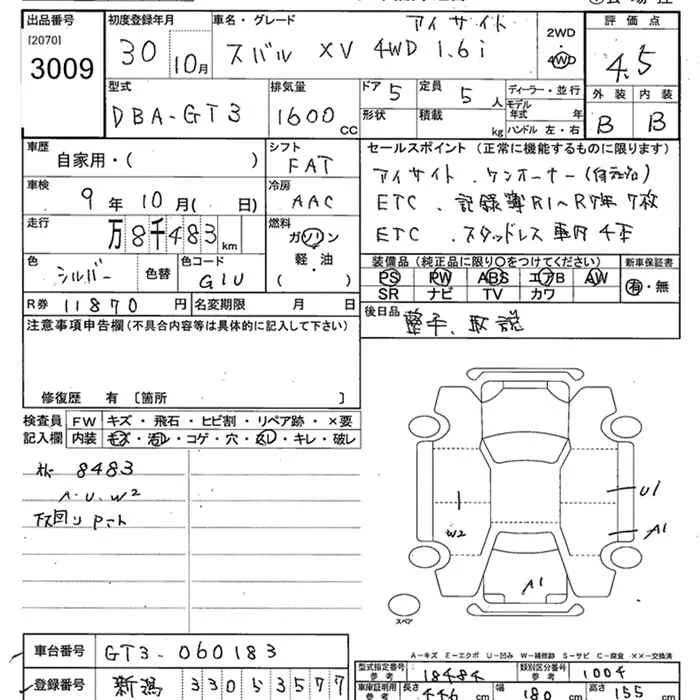 出品番号 初度登録年月 車名・グレード アイサイト 評価点
[2070]
3009 30 10月 スバル XV 4WD 1.6i 2WD 4WD 4.5
型式 排気量 ドア 5 定員 5人 ディーラー・並行 外装 内装
DBA-GT3 1600cc 形状 積載 kg モデル年式 年 B B
ハンドル 左・右
車歴 シフト セールスポイント(正常に機能するものに限ります)
自家用・( ) FAT アイサイト、ワンオーナー
車検 9年10月( 日) 冷房 AAC ETC、記録簿R1〜R7年7枚
走行 万8千483km 燃料 ガソリン ETC、スタッドレス車内4本
軽・油
( )
色 シルバー 色替 色コード G1U 装備品(純正品に限り○をつけてください) 新車保証書
PS PW ABS エアB AW 有・無
SR ナビ TV カワ
R券 11870円 名変期限 月 日 後日品 整手、取説
注意事項申告欄(不具合内容等は具体的に記入して下さい)
修復歴 有 [箇所 ]
検査員 FW キズ・飛石・ヒビ割・リペア跡・×要
記入欄 内装 キズ・汚レ・コゲ・穴・スレ・キレ・破レ
8483
A.U.W2
下回り Pコート
U1
W2
A1
A1
スペア
A=キズ E=エクボ U=凹み W=補修跡 S=サビ C=腐食 ××=交換済
車台番号 GT3-060183 型式指定番号 参考 18484 類別区分番号 参考 1004
登録番号 新潟 330 3577 車庫証明用 参考 長さ 446cm 幅 180cm 高さ 155cm